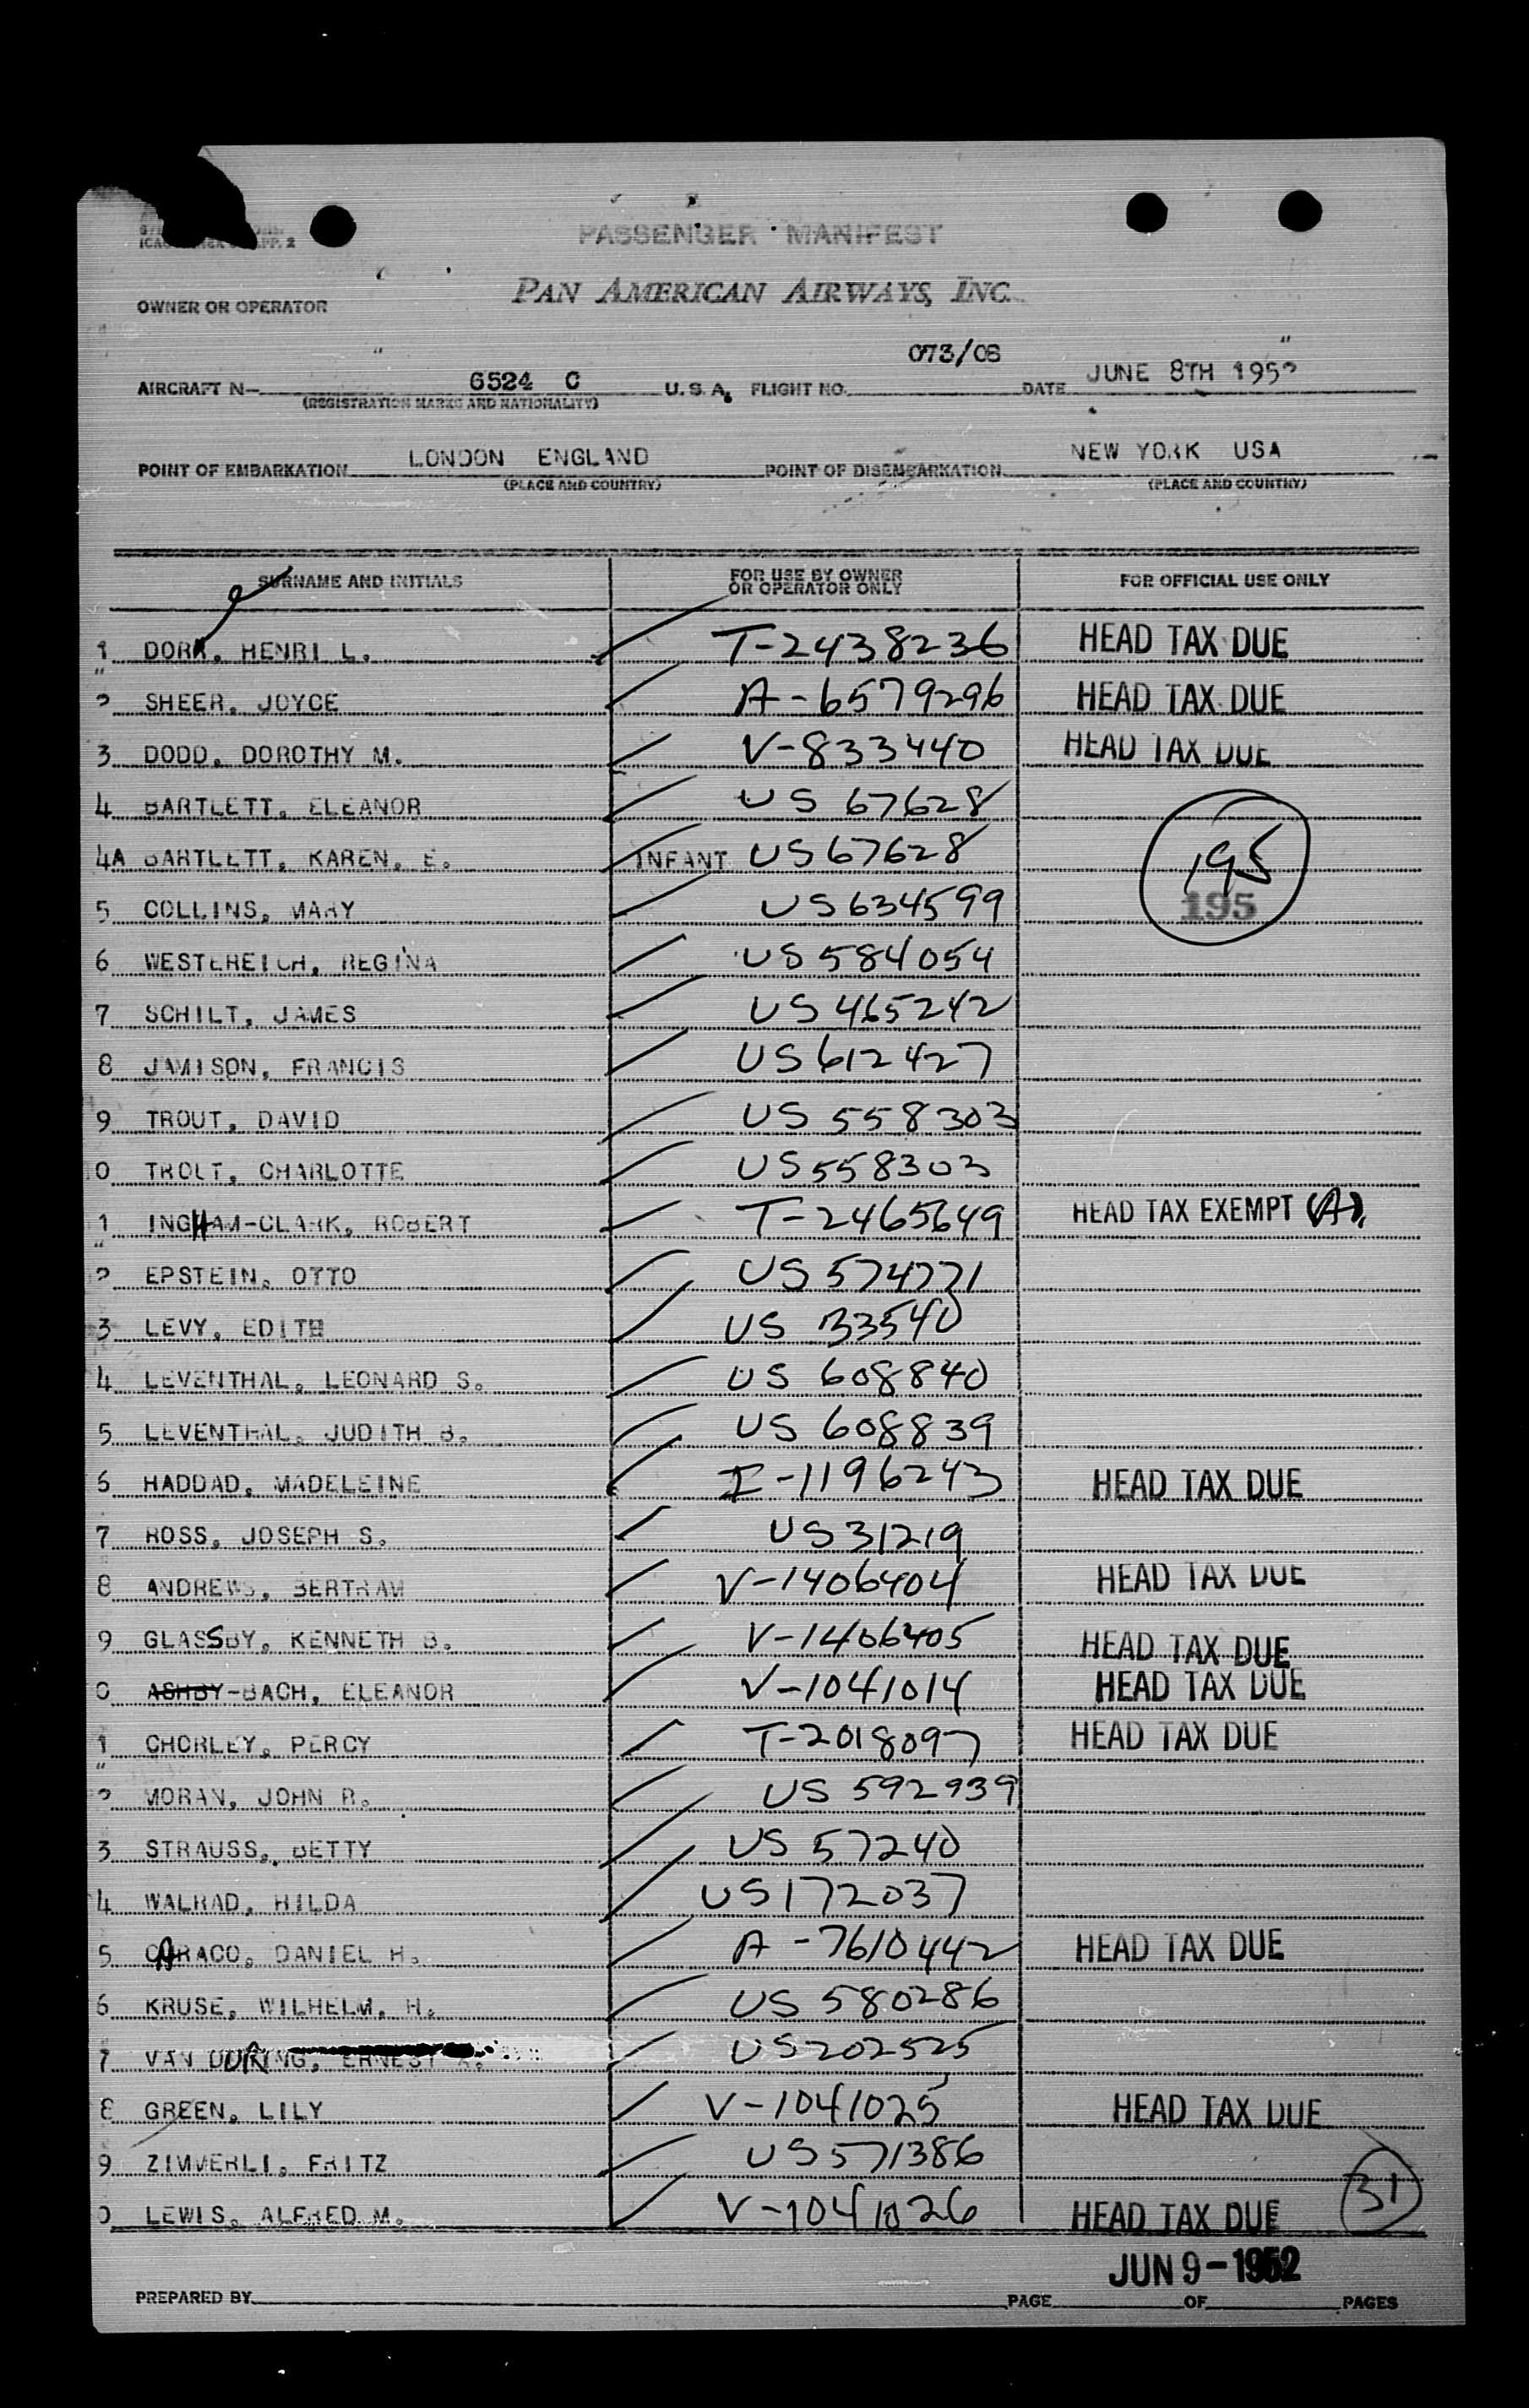 PASSENGER MANIFEST
PAN AMERICAN AIRWAYS, INC.
OWNER OR OPERATOR
AIRCRAFT N- 6524 C U.S.A. FLIGHT NO. 073/08 DATE JUNE 8TH 1952
(REGISTRATION MARKS AND NATIONALITY)
POINT OF EMBARKATION LONDON ENGLAND POINT OF DISEMBARKATION NEW YORK USA
(PLACE AND COUNTRY) (PLACE AND COUNTRY)
SURNAME AND INITIALS FOR USE BY OWNER OR OPERATOR ONLY FOR OFFICIAL USE ONLY
1 DORE, HENRI L. T-2438236 HEAD TAX DUE
2 SHEER, JOYCE A-6579296 HEAD TAX DUE
3 DODD, DOROTHY M. V-833440 HEAD TAX DUE
4 BARTLETT, ELEANOR US 67628
4A BARTLETT, KAREN, E. INFANT US 67628 195
5 COLLINS, MARY US 634599 195
6 WESTEREICH, REGINA US 584054
7 SCHILT, JAMES US 465242
8 JAMISON, FRANCIS US 612427
9 TROUT, DAVID US 558303
0 TROUT, CHARLOTTE US 558303
1 INGHAM-CLARK, ROBERT T-2465649 HEAD TAX EXEMPT (A)
2 EPSTEIN, OTTO US 574771
3 LEVY, EDITH US 33540
4 LEVENTHAL, LEONARD S. US 608840
5 LEVENTHAL, JUDITH B. US 608839
6 HADDAD, MADELEINE I-1196243 HEAD TAX DUE
7 ROSS, JOSEPH S. US 31219
8 ANDREWS, BERTRAM V-1406404 HEAD TAX DUE
9 GLASSBY, KENNETH B. V-1406405 HEAD TAX DUE
0 ASHBY-BACH, ELEANOR V-1041014 HEAD TAX DUE
1 CHORLEY, PERCY T-2018097 HEAD TAX DUE
2 MORAN, JOHN R. US 592939
3 STRAUSS, BETTY US 57240
4 WALRAD, HILDA US 172037
5 CARACO, DANIEL H. A-7610442 HEAD TAX DUE
6 KRUSE, WILHELM, H. US 580286
7 VAN DURING, ERNEST US 202525
8 GREEN, LILY V-1041025 HEAD TAX DUE
9 ZIMMERLI, FRITZ US 571386
0 LEWIS, ALFRED M. V-1041026 HEAD TAX DUE 31
JUN 9-1952
PREPARED BY PAGE OF PAGES